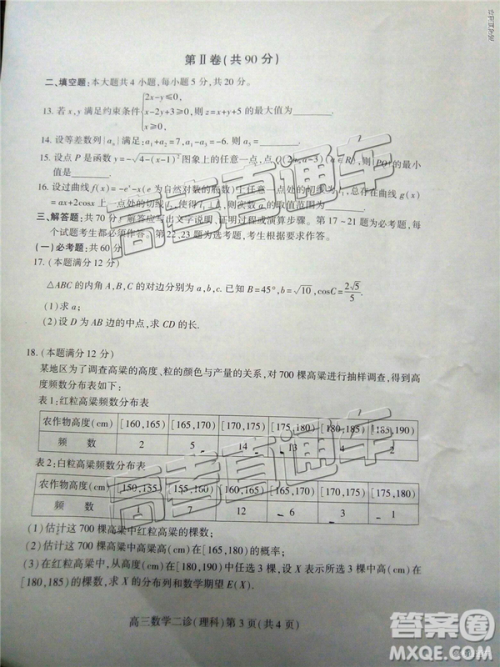 第Ⅱ卷(共90分)
二、填空题:本大题共4小题,每小题5分,共20分。
13. 若x,y满足约束条件{2x-y≤0, x-2y+3≥0, x≥0, 则z=x+y+5的最大值为
14. 设等差数列{aₙ}满足a₁+a₂=7,a₁-a₃=-6. 则a₅=
15. 设点P是函数y=-√4-(x-1)²图象上的任意一点,点Q(2a,a-3)(a∈R),则|PQ|的最小值为
16. 设过曲线f(x)=-eˣ-x(e为自然对数的底数)上任意一点处的切线为l₁,总存在过曲线g(x)
=ax+2cosx上一点处的切线l₂,使得l₁⊥l₂,则实数a的取值范围为
三、解答题:共70分。解答应写出文字说明、证明过程或演算步骤。第17~21题为必考题,每
个试题考生都必须作答。第22、23题为选考题,考生根据要求作答。
(一)必考题:共60分
17. (本题满分12分)
△ABC的内角A,B,C的对边分别为a,b,c. 已知B=45°,b=√10,cosC=2√5/5.
(1)求a;
(2)设D为AB边的中点,求CD的长。
18. (本题满分12分)
某地区为了调查高粱的高度、粒的颜色与产量的关系,对700棵高粱进行抽样调查,得到高
度频数分布表如下:
表1:红粒高粱频数分布表
农作物高度(cm) [160,165) [165,170) [170,175) [175,180) [180,185) [185,190)
频 数 2 5 14 13 4 2
表2:白粒高粱频数分布表
农作物高度(cm) [150,155) [155,160) [160,165) [165,170) [170,175) [175,180)
频 数 1 7 12 6 3 1
(1)估计这700棵高粱中红粒高粱的棵数;
(2)估计这700棵高粱中高粱高(cm)在[165,180)的概率;
(3)在红粒高粱中,从高度(cm)在[180,190)中任选3棵,设X表示所选3棵中高(cm)在
[180,185)的棵数,求X的分布列和数学期望E(X).
高三数学二诊(理科)第3页(共4页)
高考直通车
高考直通车
答案圈
MXQE.COM